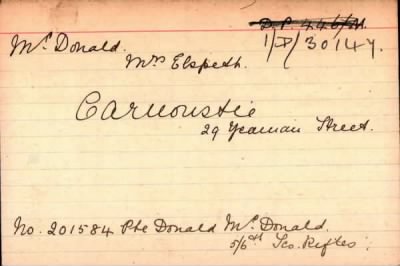 D.P. 446/M.
Mc Donald. 1/D/30147.
Mrs Elspeth.
Carnoustie
29 Yeaman Street.
No. 201584 Pte Donald McDonald.
5/6th Sco. Rifles.